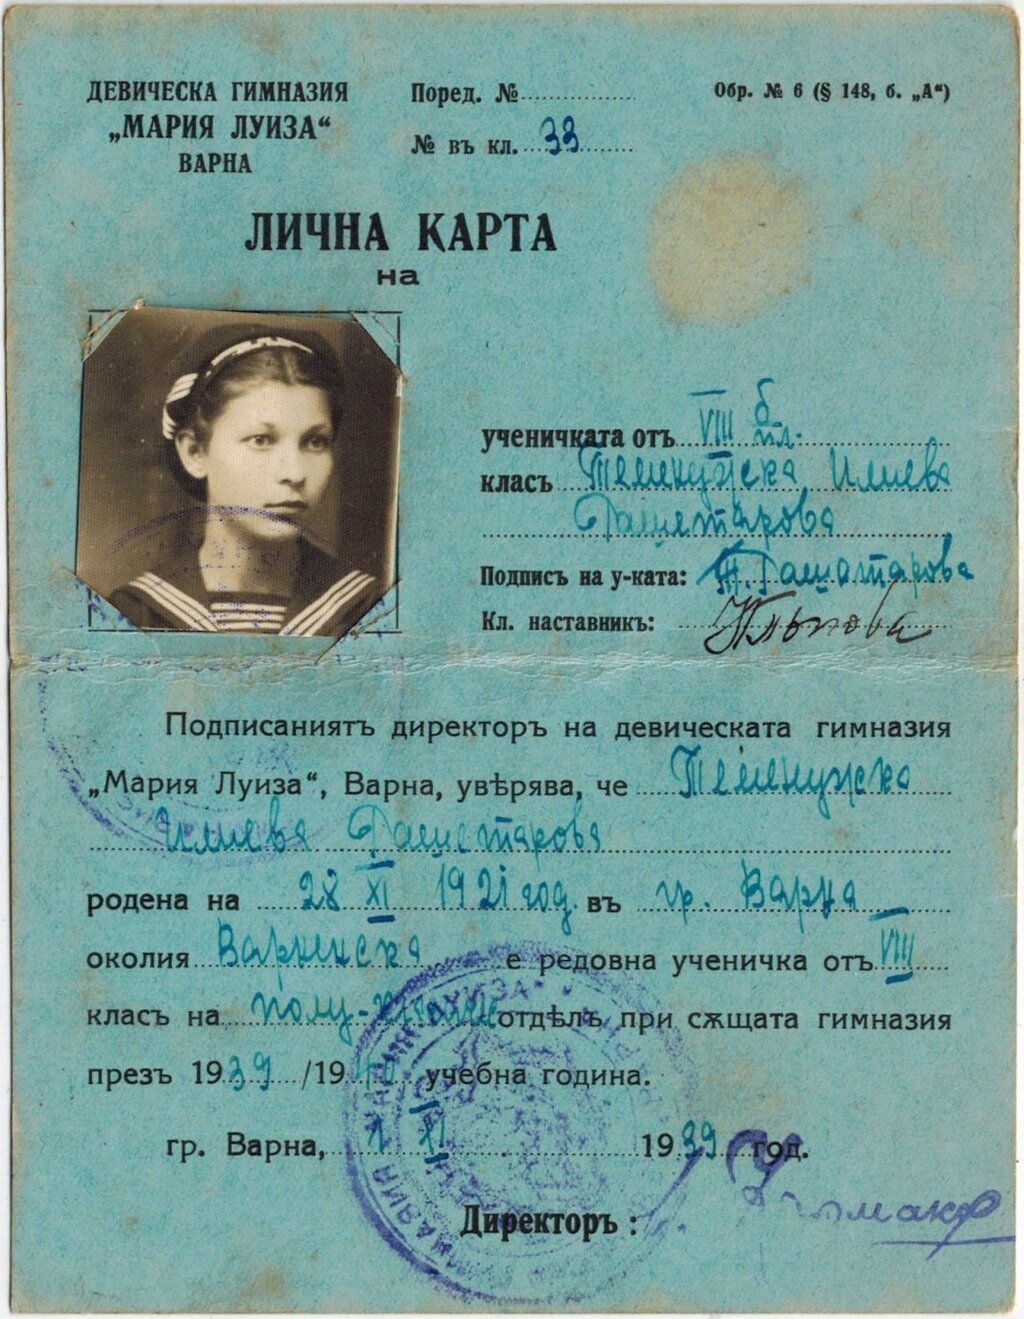 ДЕВИЧЕСКА ГИМНАЗИЯ
„МАРИЯ ЛУИЗА“
ВАРНА
Поред. №
№ въ кл. 33
Обр. № 6 (§ 148, б. „А“)
ЛИЧНА КАРТА
на
ученичката отъ VIII б пл.
класъ Теменужка Илиева
Подпись на у-ката:
Кл. наставникъ:
Подписаниятъ директоръ на девическата гимназия
„Мария Луиза“, Варна, увѣрява, че Теменужка
Илиева
родена на 28 XI 1921 год. въ гр. Варна
околия Варненска е редовна ученичка отъ VIII
класъ на полу- отдѣлъ при сѫщата гимназия
презъ 1939/1940 учебна година.
гр. Варна, 1 XI 1939 год.
Директоръ: